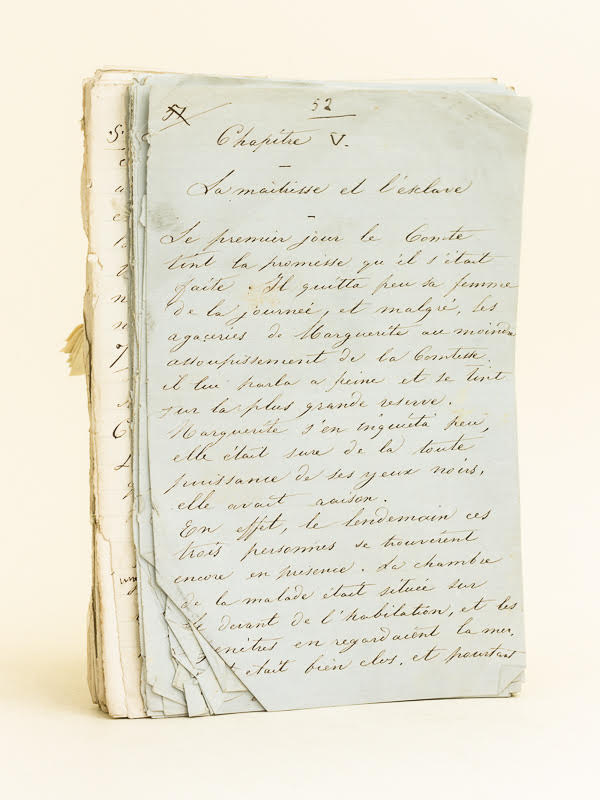 51 52
Chapitre V.
La maîtrisse et l'esclave
Le premier jour le Comte
tint la promesse qu'il s'était
faite. Il quitta peu sa femme
de la journeé, et malgré, les
agaçeries de Marguerite au moindre
assoupissement de la Comtesse.
il lui parla a peine et se tint
sur la plus grande reserve.
Marguerite s'en inquiéta peu,
elle était sure de la toute
puissance de ses yeux noirs,
elle avait raison.
En effet, le lendemain ces
trois personnes se trouvèrent
encore en présence. La chambre
de la malade était située sur
le devant de l'habitation, et les
fenêtres en regardaient la mer.
était bien clos. et pourtant